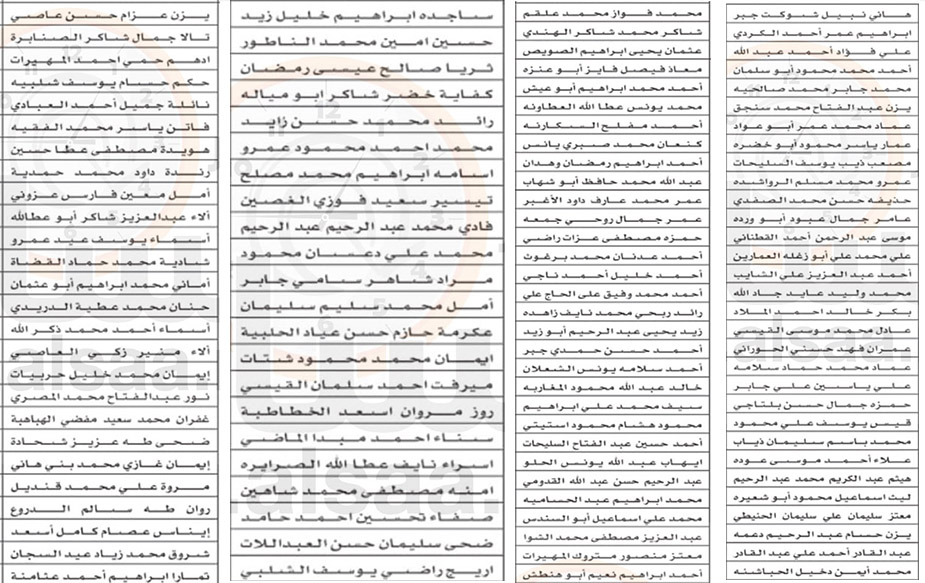 هاني نبيل شوكت جبر
ابراهيم عمر أحمد الكردي
علي فؤاد أحمد عبد الله
أحمد محمد محمود أبو سلمان
محمد جابر محمد صالحيه
يزن عبد الفتاح محمد سنجق
عماد محمد عمر أبو عواد
عمار ياسر محمود أبو خضره
مصعب ذيب يوسف السليحات
عمرو محمد مسلم الرواشده
حذيفه حسن محمد الصفدي
عامر جمال عبود أبو ورده
موسى عبد الرحمن أحمد القطناني
علي محمد علي أبو زغله العمارين
أحمد عبد العزيز علي الشايب
محمد وليد عايد جاد الله
بكر خالد احمد الملاد
عادل محمد موسى القيسي
عمران فهد حسني الحوراني
عماد محمد حماد سلامه
علي ياسين علي جابر
حمزه جمال حسن بلتاجي
قيس يوسف علي محمود
محمد باسم سليمان ذياب
علاء أحمد موسى عوده
هيثم عبد الكريم محمد عبد الرحيم
ليث اسماعيل محمود أبو شعيره
معتز سليمان علي سليمان الحنيطي
يزن حسام عبد الرحيم دعمه
عبد القادر أحمد علي عبد القادر
محمد أيمن دخيل الحباشنه
محمد فواز محمد علقم
شاكر محمد شاكر الهندي
عثمان يحيى ابراهيم الصويص
معاذ فيصل فايز أبو عنزه
أحمد محمد ابراهيم أبو عيش
محمد يونس عطا الله العطاونه
أحمد مفلح السكارنه
كنعان محمد صبري يانس
أحمد ابراهيم رمضان وهدان
عبد الله محمد حافظ أبو شهاب
عمر محمد عارف داود الأغبر
عمر جمال روحي جمعه
حمزه مصطفى عزات راضي
أحمد عدنان محمد برغوث
أحمد خليل أحمد ناجي
أحمد محمد وفيق على الحاج علي
رائد ربحي محمد نايف زاهده
زيد يحيى عبد الرحيم أبو زيد
أحمد حسن حمدي جبر
أحمد سلامه يونس الشعلان
خالد عبد الله محمود المغاربه
سيف محمد علي ابراهيم
محمود هشام محمود استيتي
أحمد حسين عبد الفتاح السليحات
ايهاب عبد الله يونس الحلو
عبد الرحيم حسن عبد الله القدومي
محمد ابراهيم عبد الحساميه
محمد علي اسماعيل أبو السندس
عبد العزيز مصطفى محمد الشوا
معتز منصور متروك المهيرات
أحمد ابراهيم نعيم أبو هنطش
ساجده ابراهيم خليل زيد
حسين امين محمد الناطور
ثريا صالح عيسى رمضان
كفاية خضر شاكر ابو مياله
رائد محمد حسن زايد
محمد احمد محمود عمرو
اسامه ابراهيم محمد مصلح
تيسير سعيد فوزي الغصين
فادي محمد عبد الرحيم عبد الرحيم
محمد علي دعسان محمود
مراد شاهر سامي جابر
أمل محمد سليم سليمان
عكرمة حازم حسن عياد الحلبية
ايمان محمد محمود شتات
ميرفت احمد سلمان القيسي
روز مروان اسعد الخطاطبة
سناء احمد ميدا الماضي
اسراء نايف عطا الله الصرايره
امنه مصطفى محمد شاهين
صفاء تحسين احمد حامد
ضحى سليمان حسن العبداللات
اريج راضي يوسف الشلبي
يزن عزام حسن عاصي
تالا جمال شاكر الصنابرة
ادهم حمي احمد المهيرات
حكم حسام يوسف شلبيه
نائلة جميل أحمد العبادي
فاتن ياسر محمد الفقيه
هويدة مصطفى عطا حسين
رندة داود محمد حمدية
أمل معين فارس عزوني
ألاء عبدالعزيز شاكر أبو عطاالله
أسماء يوسف عيد عمرو
شادية محمد حماد القضاة
أماني محمد ابراهيم أبو عثمان
حنان محمد عطية الدريدي
أسماء أحمد محمد ذكر الله
ألاء منير زكي العاصي
إيمان محمد خليل حربيات
نور عبدالفتاح محمد المصري
غفران محمد سعيد مفضي الهباهبة
ضحى طه عزيز شحادة
إيمان غازي محمد بني هاني
مروة علي محمد قنديل
روان طه سالم الدروع
إيناس عصام كامل أسعد
شروق محمد زياد عبد السجان
تمارا ابراهيم أحمد عثامنة